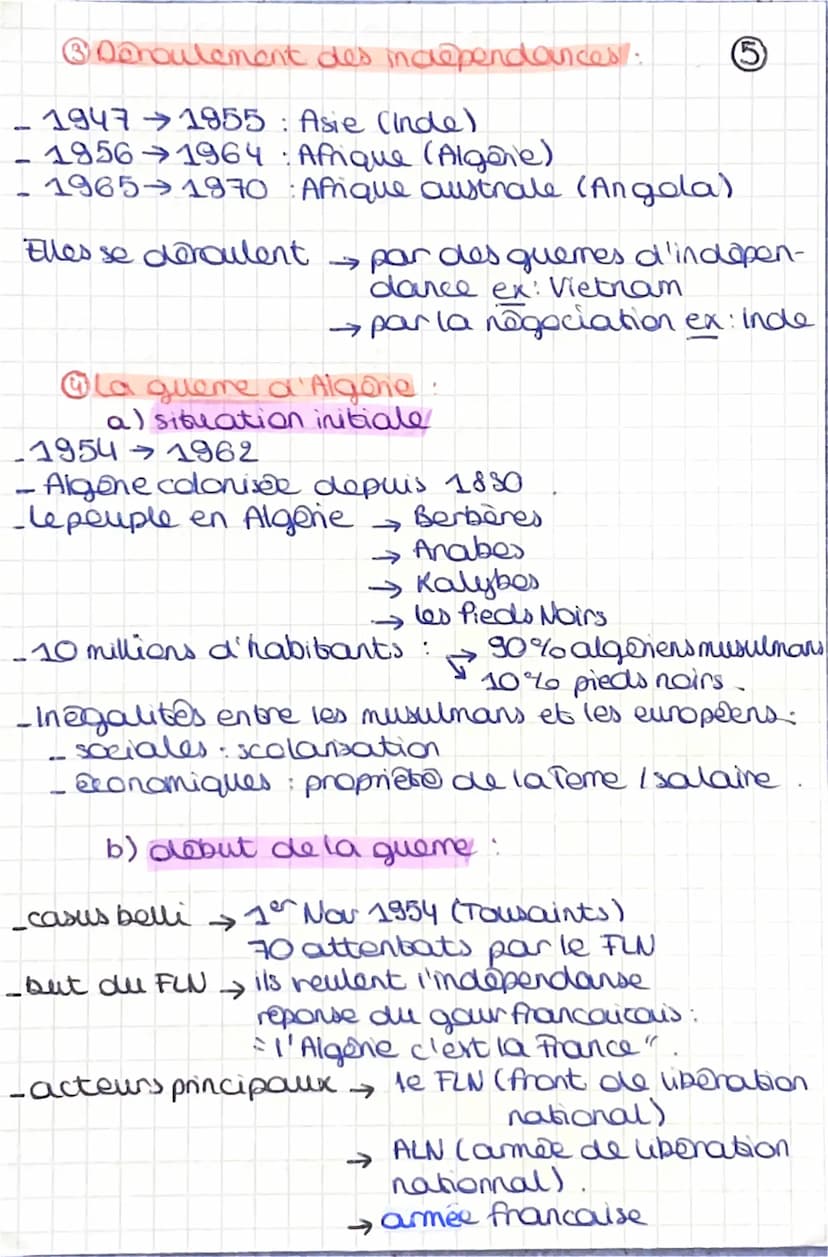 ③ Déroulement des indépendances : ⑤
- 1947 → 1955 : Asie (Inde)
- 1956 → 1964 : Afrique (Algérie)
- 1965 → 1970 : Afrique australe (Angola)
Elles se déroulent → par des guerres d'indépen-
dance ex : Vietnam
→ par la négociation ex : Inde
④ La guerre d'Algérie :
a) situation initiale
- 1954 → 1962
- Algérie colonisée depuis 1830.
- le peuple en Algérie → Berbères
→ Arabes
→ Kalybes
→ les Pieds Noirs
- 10 millions d'habitants : → 90% algériens musulmans
↘ 10% pieds noirs.
- Inégalités entre les musulmans et les européens :
- sociales : scolarisation
- économiques : propriété de la Terre / salaire.
b) début de la guerre :
- casus belli → 1er Nov 1954 (Tousaints)
70 attentats par le FLN
- but du FLN → ils veulent l'indépendanse
réponse du gour francaicais :
"l'Algérie c'est la France".
- acteurs principaux → le FLN (front de libération
national)
→ ALN (armée de libération
nationnal).
→ armée francaise